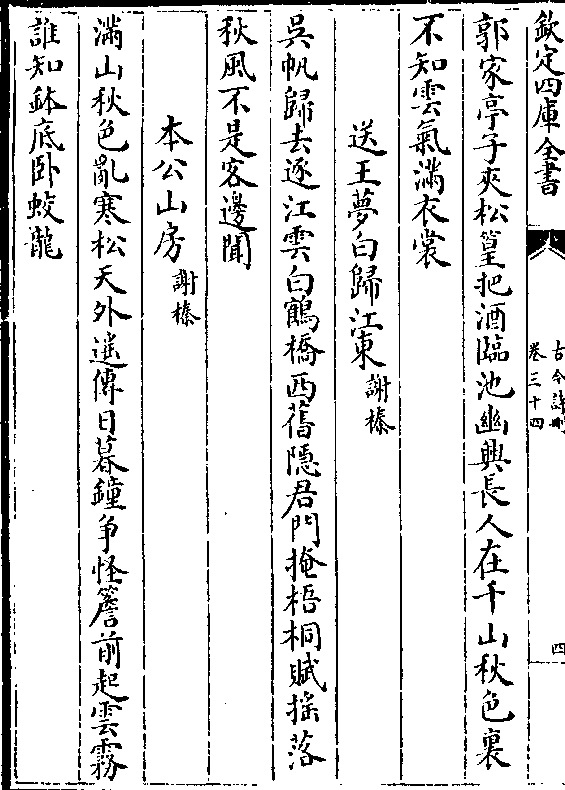 欽定四庫全書
古今詩刪
卷三十四
四
郭家亭子夾松篁把酒臨池幽興長人在千山秋色裏
不知雲氣滿衣裳
送王夢白歸江東 謝榛
吳帆歸去逐江雲白鶴橋西舊隱君門掩梧桐賦揺落
秋風不是客邊聞
本公山房 謝榛
滿山秋色亂寒松天外遥傳日暮鐘争怪簷前起雲霧
誰知鉢底卧蛟龍